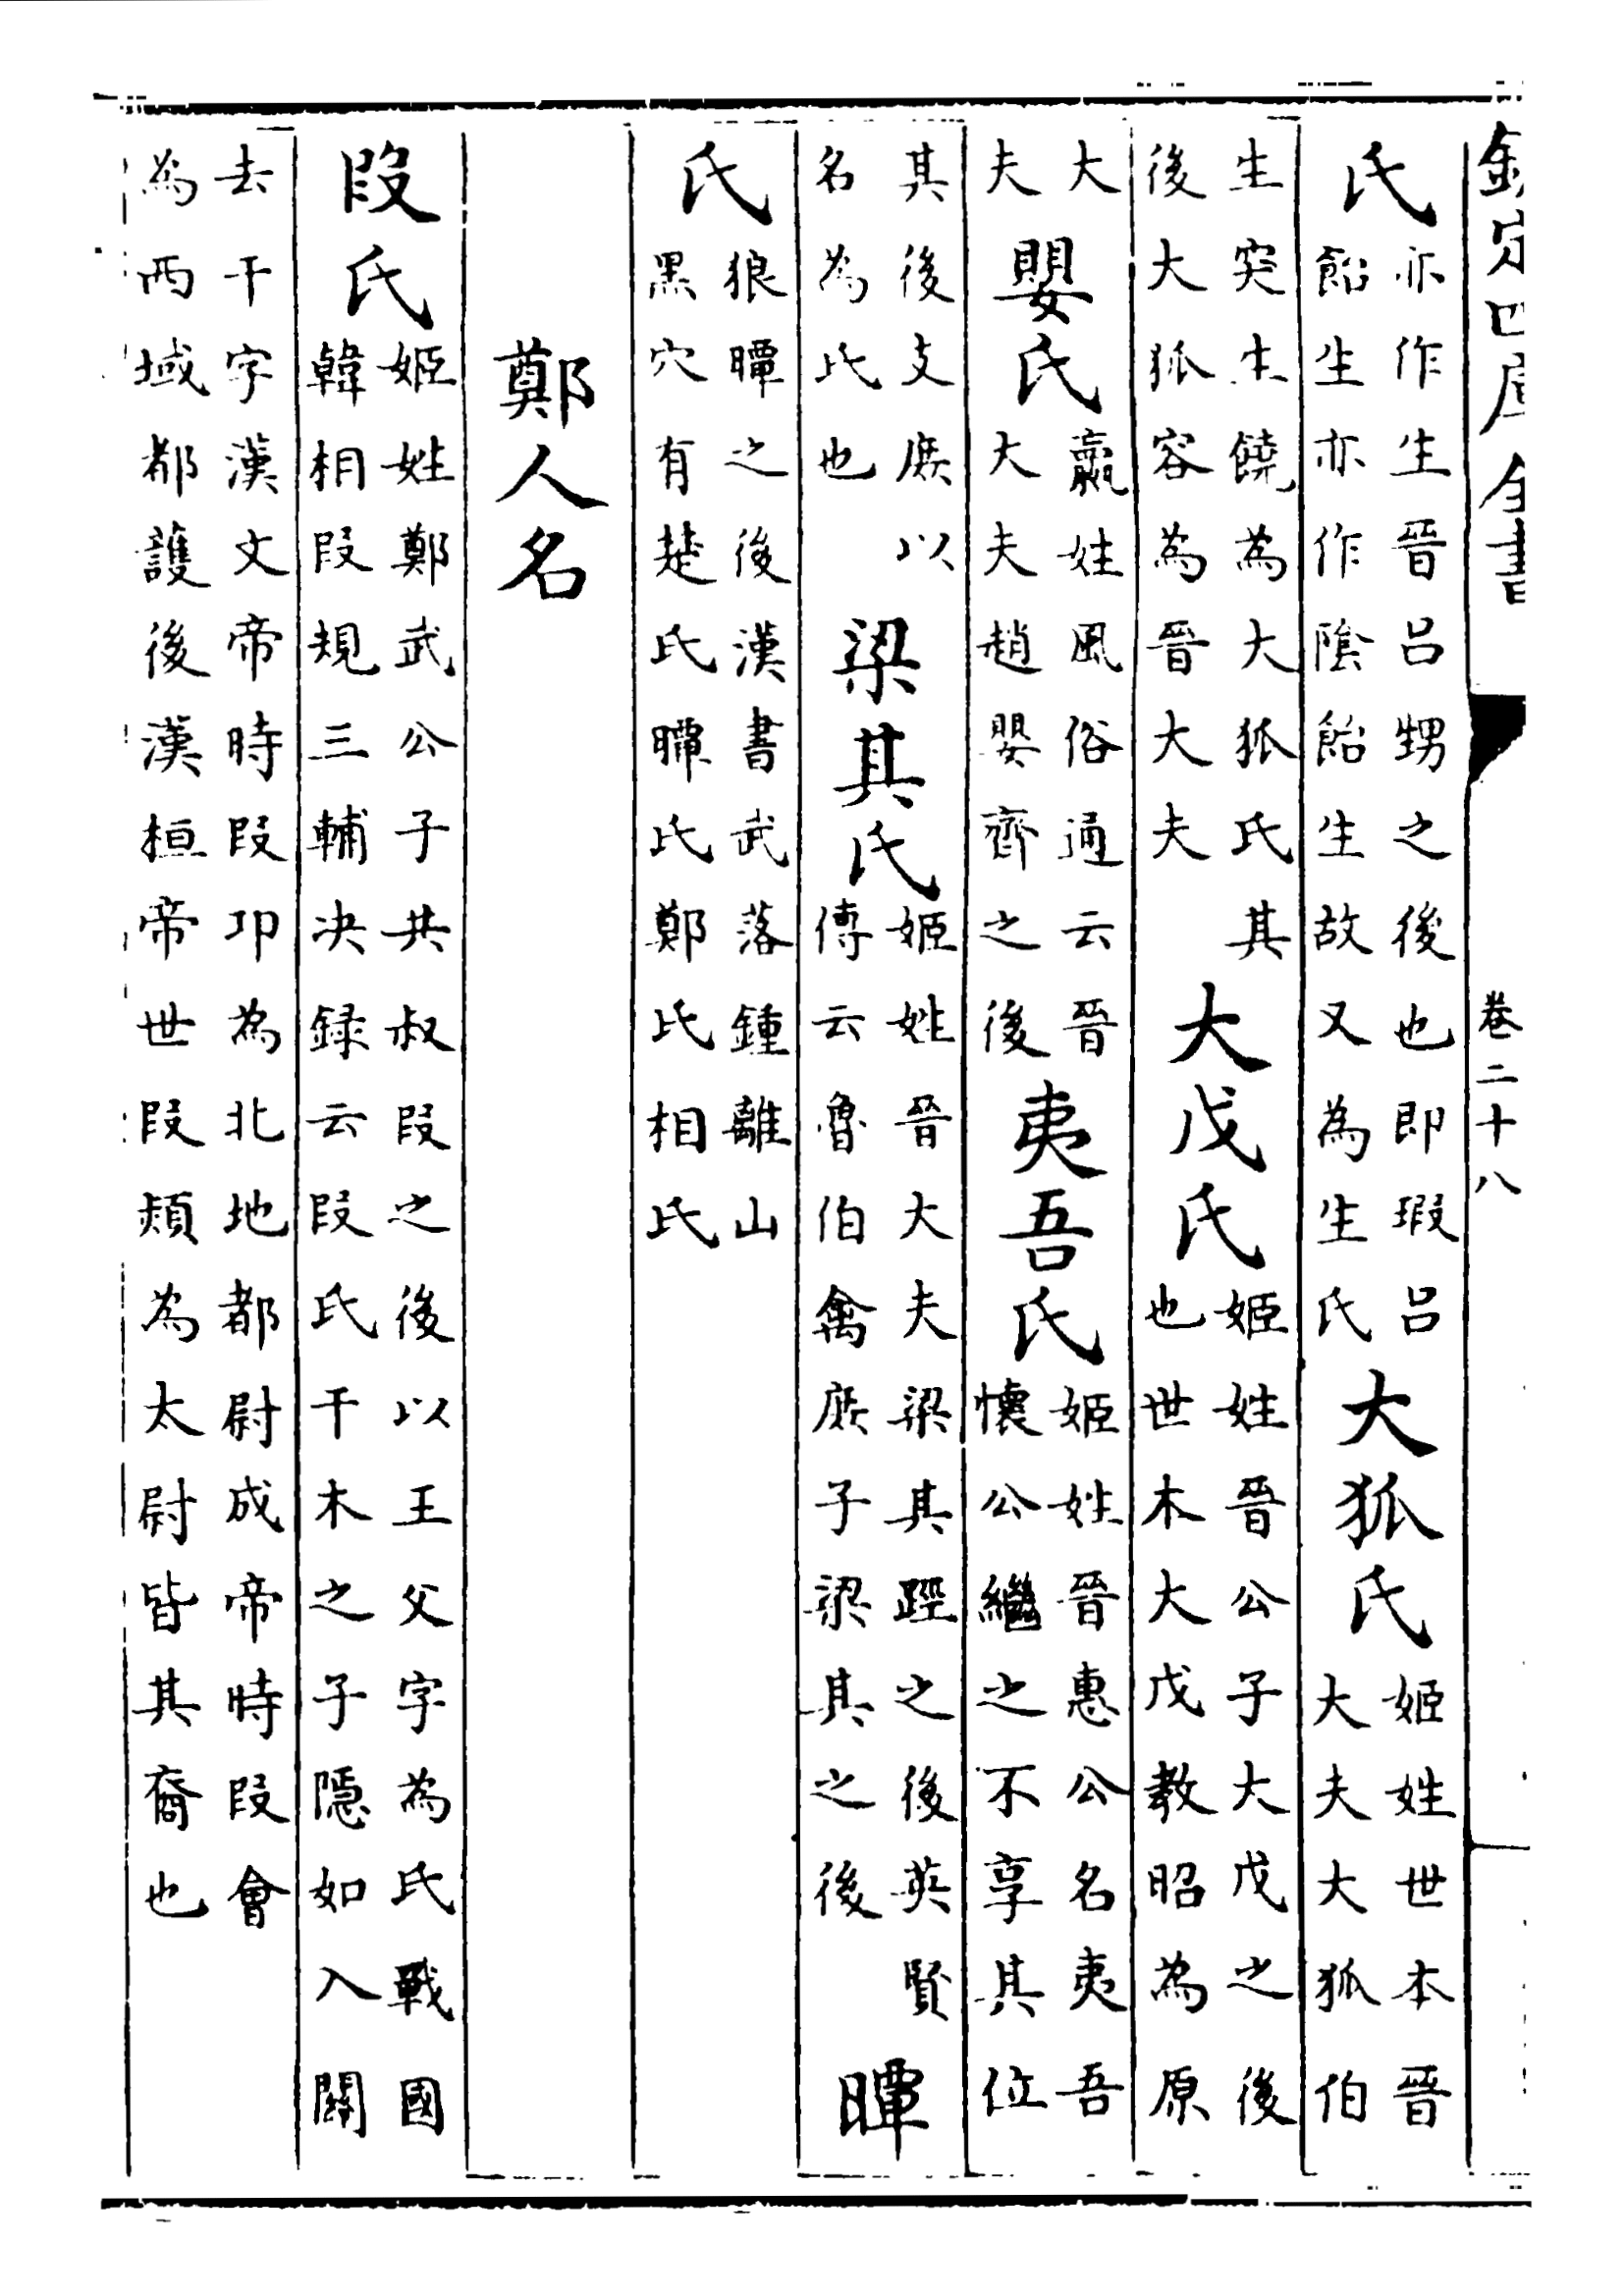 欽定四庫全書
卷二十八
氏亦作生晉呂甥之後也即瑕呂
飴生亦作陰飴生故又為生氏
大狐氏姬姓世本晉
大夫大狐伯
生突生饒為大狐氏其
後大狐容為晉大夫
大戊氏姬姓晉公子大戊之後
也世本大戊教昭為原
大
夫
嬰氏嬴姓風俗通云晉
大夫趙嬰齊之後
夷吾氏姬姓晉惠公名夷吾
懷公繼之不享其位
其後支庶以
名為氏也
梁其氏姬姓晉大夫梁其踁之後英賢
傳云魯伯禽庶子梁其之後
暉
氏狼暉之後漢書武落鍾離山
黑穴有楚氏暉氏鄭氏相氏
鄭人名
段氏姬姓鄭武公子共叔段之後以王父字為氏戰國
韓相段規三輔决録云段氏干木之子隱如入關
去干字漢文帝時段卬為北地都尉成帝時段會
為西域都護後漢桓帝世段熲為太尉皆其裔也